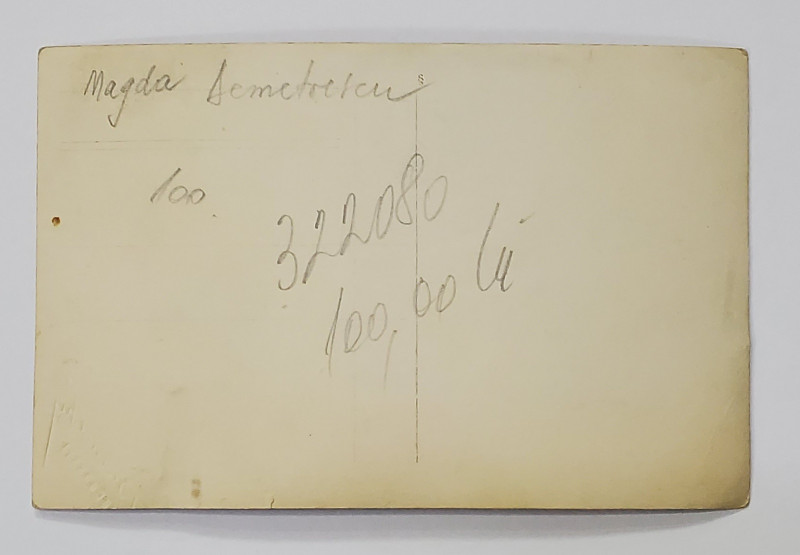 Magda Demetrescu
100
322080
100,00 lei